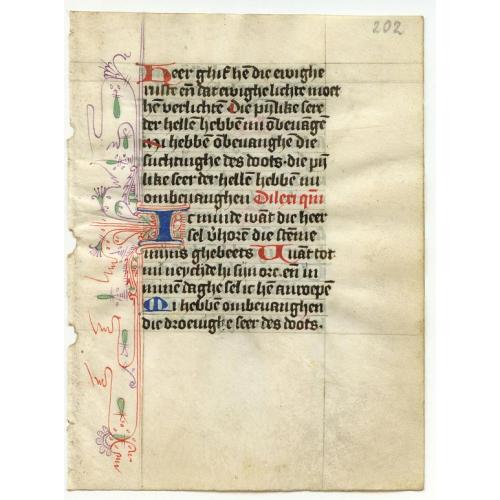 202
Heer ghif hē die ewighe
ruste eñ dat ewighe lichte moet
hē verlichtē Die pijnlike sere
der hellē hebbē mi ōbeuāgē
Mi hebbē ōbeuanghe die
suchtinghe des doots. die pijn
like seer der hellē hebbē mi
ombeuanghen Dilexi quoniam
Ic minde wāt die heer
sel v̄horē die stēme
mijns ghebeets Want tot
mi neychde hi sijn ore. eñ in
minen daghe sel ic hē anroepen
Mi hebben ombeuanghen
die droeuighe seer des doots.